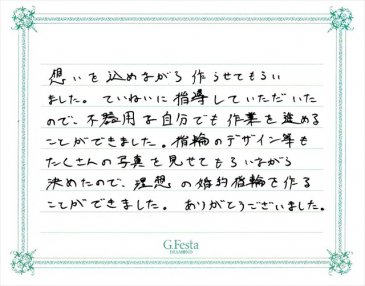 想いを込めながら作らせてもらい
ました。ていねいに指導していただいた
ので、不器用な自分でも作業を進める
ことができました。指輪のデザイン等も
たくさんの写真を見せてもらいながら
決めたので、理想の婚約指輪を作る
ことができました。ありがとうございました。
G.Festa
DIAMOND